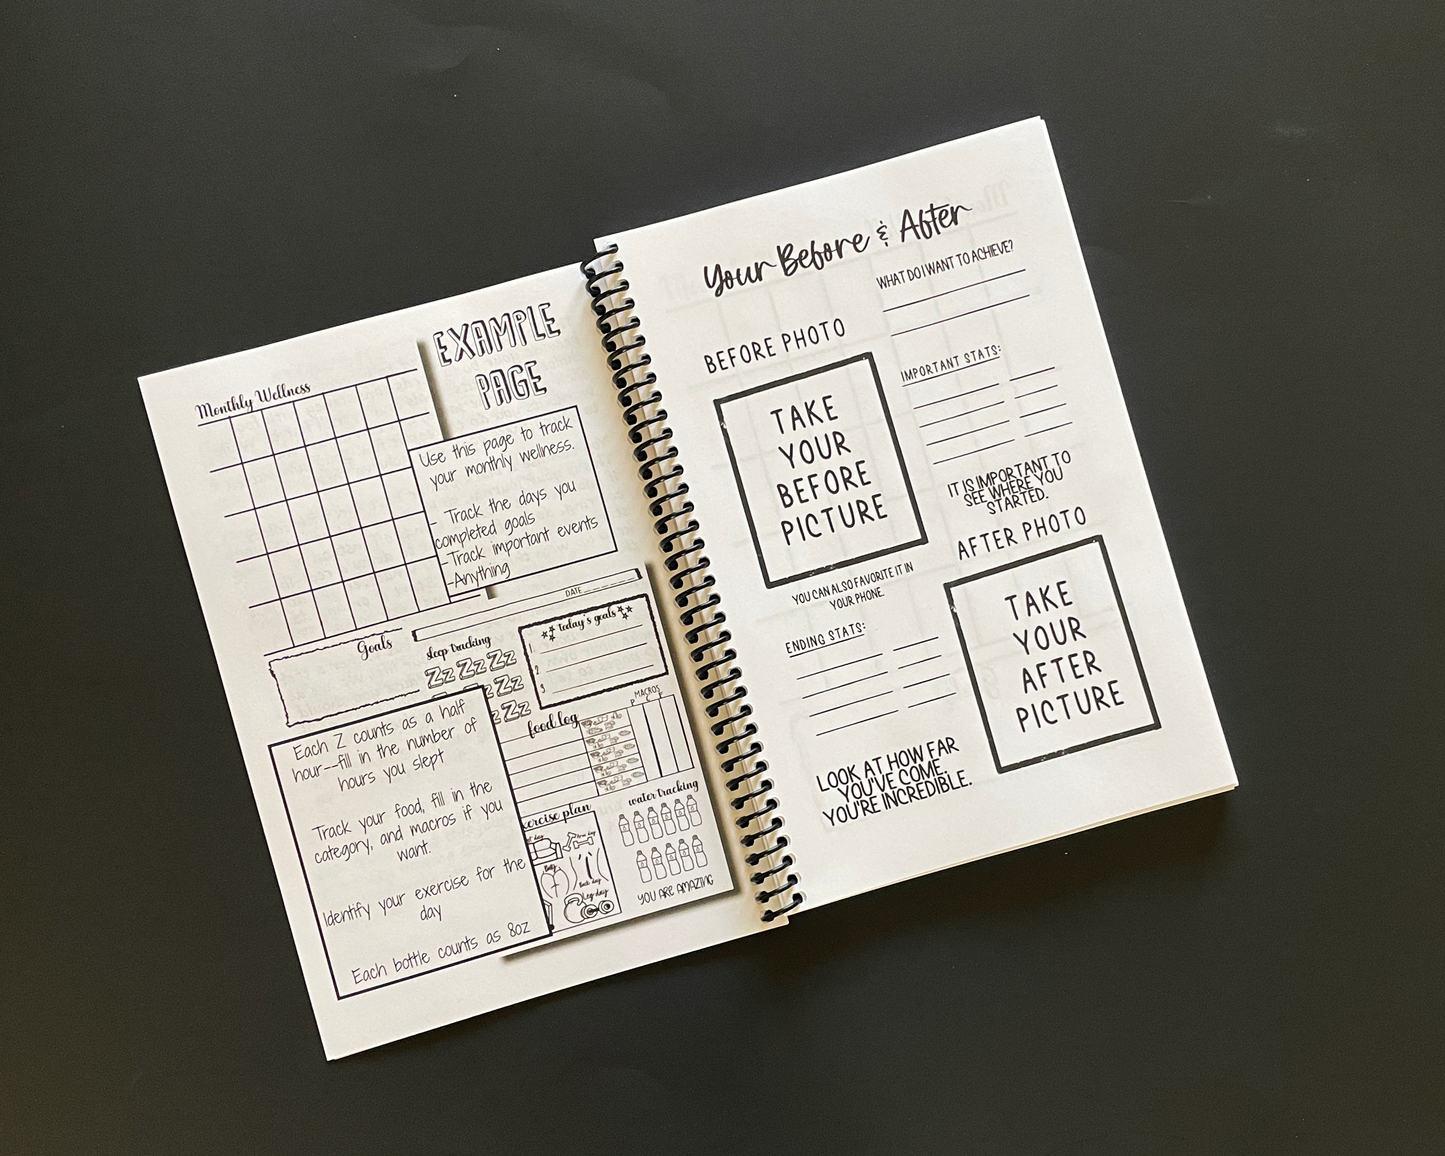 EXAMPLE
PAGE
Monthly Wellness
Use this page to track
your monthly wellness.
- Track the days you
completed goals
-Track important events
-Anything
Goals
DATE
sleep tracking
Zz Zz Zz
Zz
Zz
today's goals
1
2
3
Each Z counts as a half
hour--fill in the number of
hours you slept
Track your food, fill in the
category, and macros if you
want.
Identify your exercise for the
day
Each bottle counts as 8oz
food log
MACROS
P C F
exercise plan
Arm day
Back day
Leg day
water tracking
YOU ARE AMAZING
Your Before & After
WHAT DO I WANT TO ACHIEVE?
BEFORE PHOTO
TAKE
YOUR
BEFORE
PICTURE
IMPORTANT STATS:
IT IS IMPORTANT TO
SEE WHERE YOU
STARTED.
YOU CAN ALSO FAVORITE IT IN
YOUR PHONE.
AFTER PHOTO
TAKE
YOUR
AFTER
PICTURE
ENDING STATS:
LOOK AT HOW FAR
YOU'VE COME,
YOU'RE INCREDIBLE.